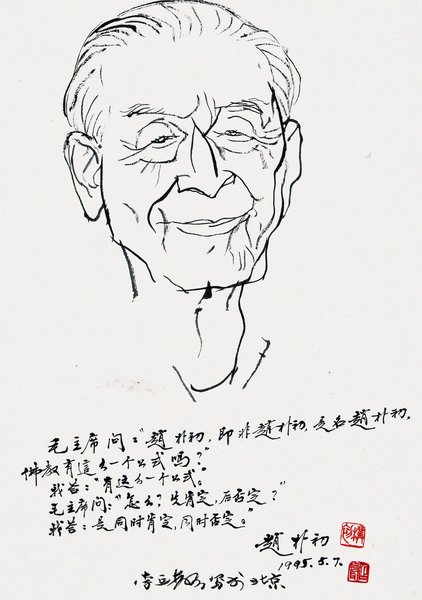 毛主席问："趙朴初，即非趙朴初，是名趙朴初，
佛教有這么一个公式吗？"
我答："有這么一个公式。"
毛主席问："怎么？先肯定，后否定？"
我答：是同时肯定，同时否定。"
趙朴初
1995.5.7.
北京